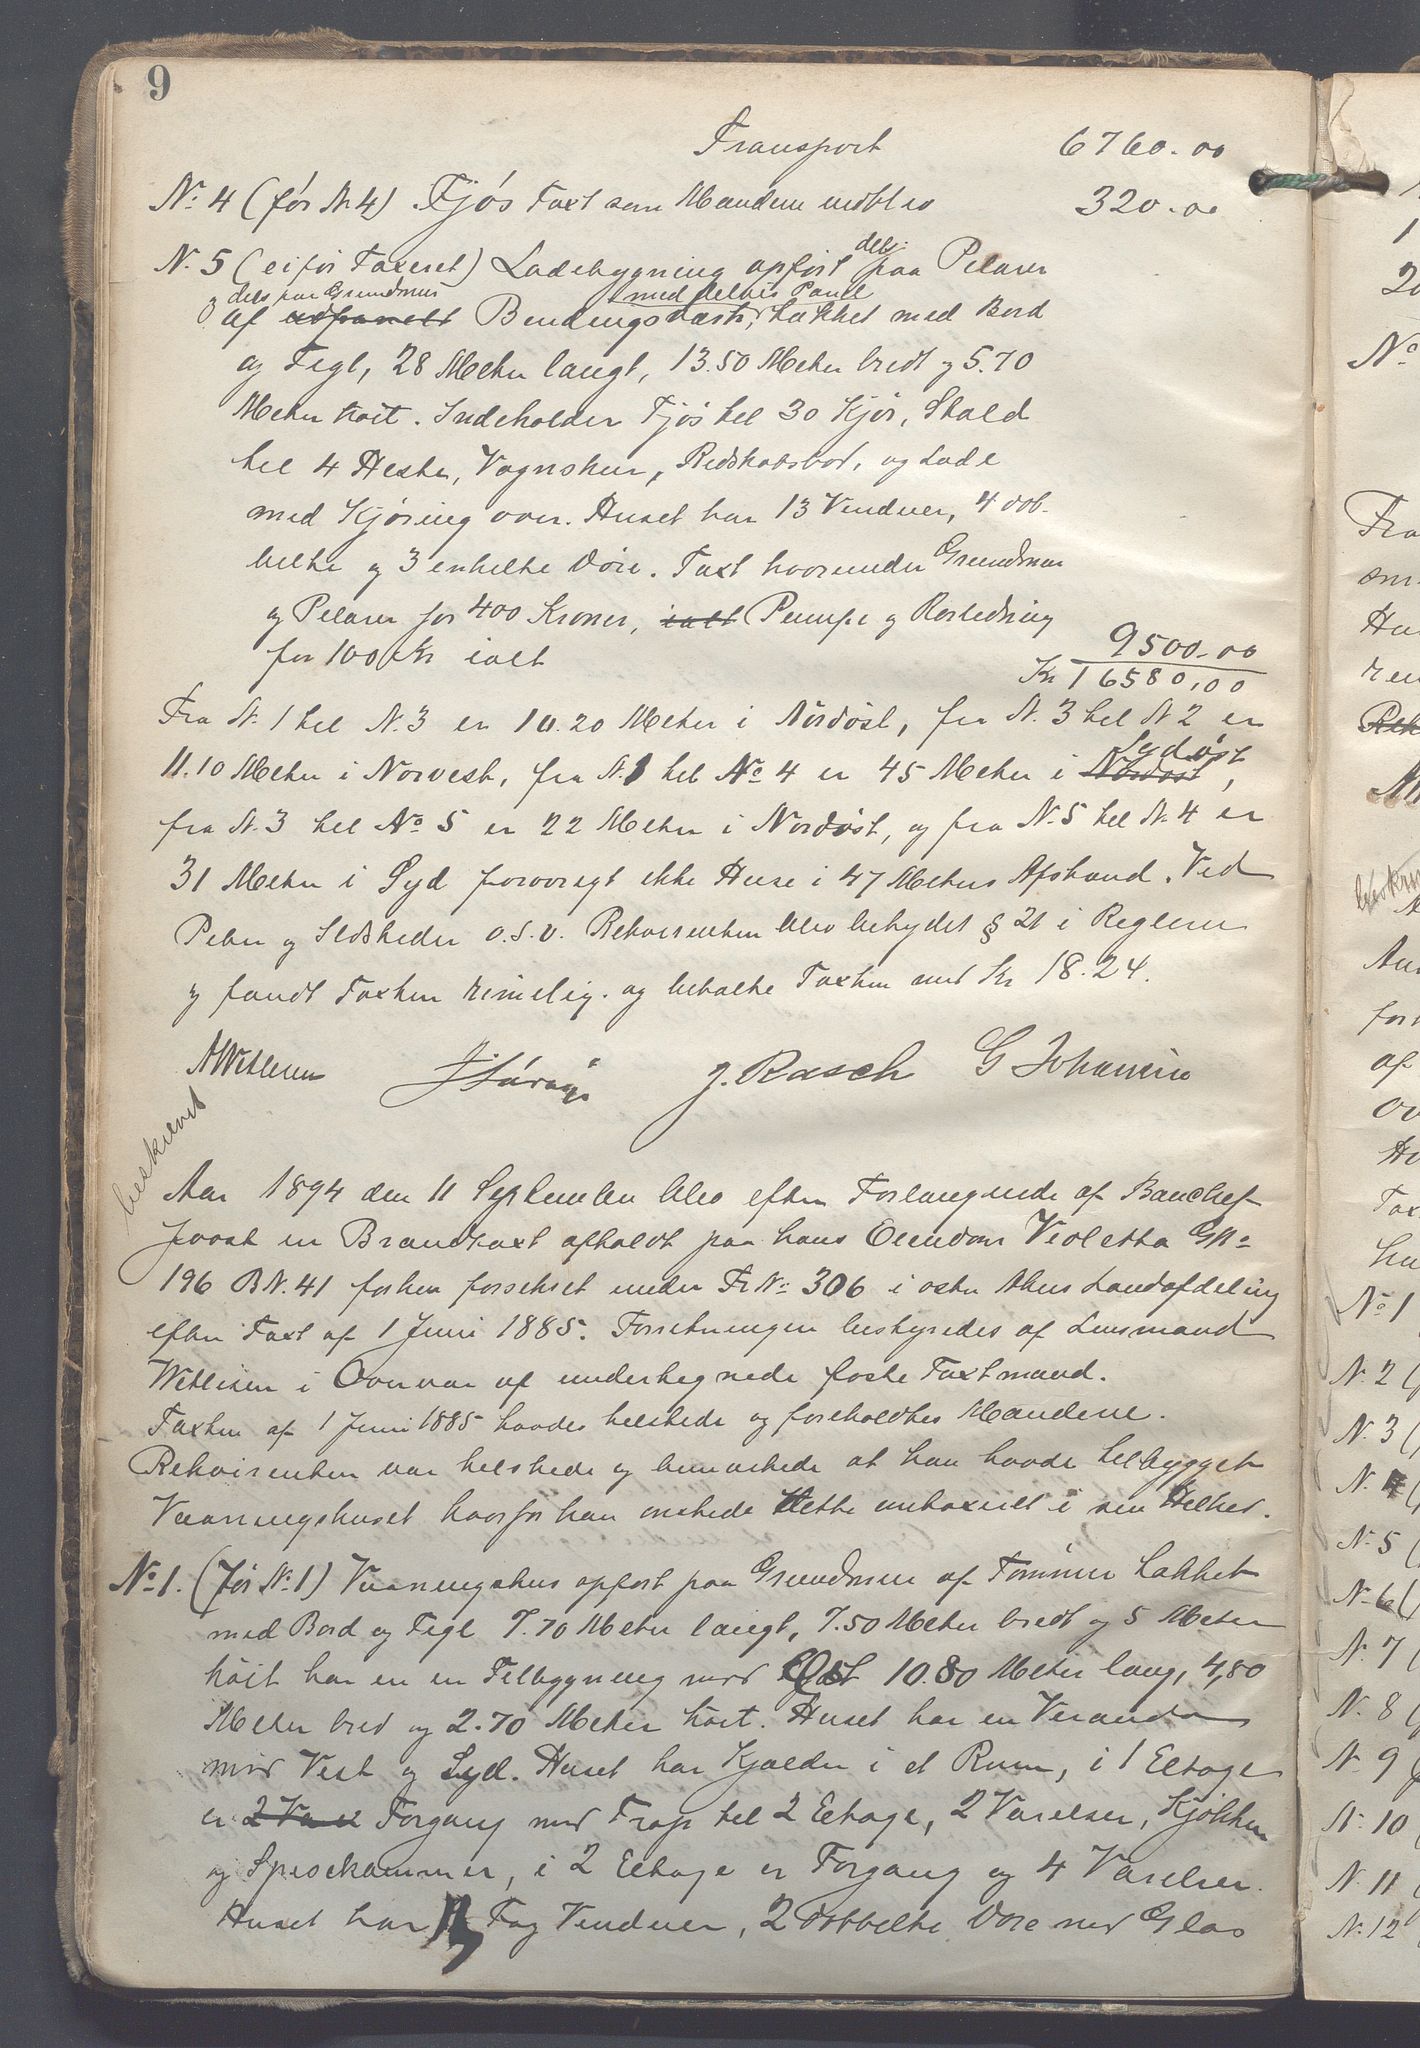 9
Transport 6760.00
No 4 (før N. 4) Fjøs Taxt som Mændene 320.00
N. 5 (ei før Taxeret) Ladebygning opført dels paa Pelarer
og dels paa Grundmur
af udpanelt Bendingsværk, med delvis Panel Tækket med Bord
og Tegl, 28 Meter langt, 13.50 Meter bredt og 5.70
Meter høit. Indeholder Fjøs til 30 Kjør, Stald
til 4 Heste, Vognskur, Redskabsbod, og Lade
med Kjøring over. Huset har 13 Vinduer, 4 dob-
belte og 3 enkelte Døre. Taxt hvorunder Grundmur
og Pelarer for 400 Kroner, ialt Pumpe og Rørledning
for 100 Kr ialt 9500.00
Kr 16580,00
Fra N. 1 til N. 3 er 10.20 Meter i Nordøst, fra N. 3 til N 2 er
11.10 Meter i Norvest, fra N. 1 til No 4 er 45 Meter i Nordøst Sydøst,
fra N. 3 til No 5 er 22 Meter i Nordøst, og fra N. 5 til N. 4 er
31 Meter i Syd forøvrigt ikke Huse i 47 Meters Afstand. Ved
Piber og Ildsteder o.s.v. Rekvirenten blev betydet § 21 i Reglerne
og fandt Taxten rimelig. og betalte Taxten med Kr 18.24.
J. Rasch G Johannesen
beskrevet
Aar 1894 den 11 September blev efter Forlangende af Banchef
Joost en Brandtaxt afholdt paa hans Eiendom Violetta GNo
196 BN. 41 forhen forsikret under FrNo 306 i østre Akers Landafdeling
efter Taxt af 1 Juni 1885. Forretningen bestyredes af Lensmand
Wetlesen i Overvær af undertegnede faste Taxtmænd.
Taxten af 1 Juni 1885 havdes tilstede og foreholdtes Mændene.
Rekvirenten var tilstede og bemærkede at han havde tilbygget
Vaaningshuset hvorfor han ønskede dette omtaxeret i sin Helhed.
No 1. (før No 1) Vaaningshus opført paa Grundmur af Tømmer Tækket
med Bord og Tegl 7.70 Meter langt, 7.50 Meter bredt og 5 Meter
høit har en en Tilbygning mod Øst 10.80 Meter lang, 4,80
Meter bred og 2.70 Meter høit. Huset har en Veranda
mod Vest og Syd. Huset har Kjælder i et Rum, i 1 Etage
er 2 Forgang med Trap til 2 Etage, 2 Værelser, Kjøkken
og Spisekammer, i 2 Etage er Forgang og 4 Værelser.
Huset har Fag Vinduer, 2 dobbelte Døre med Glas
No
No 1
N. 2
N. 3
N. 4
N. 5
N. 6
N. 7
N. 8
N. 9
N. 10
N. 11
N. 12